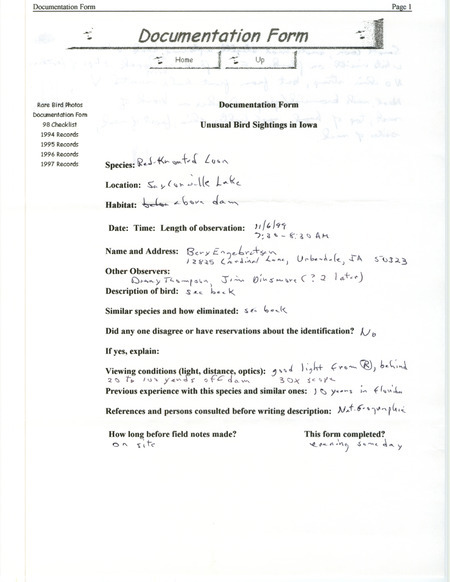 Documentation Form Page 1
Documentation Form
Home Up
Rare Bird Photos
Documentation Form
98 Checklist
1994 Records
1995 Records
1996 Records
1997 Records
Documentation Form
Unusual Bird Sightings in Iowa
Species: Red-throated Loon
Location: Saylorville Lake
Habitat: above dam
Date: Time: Length of observation: 11/6/99
7:35 - 8:30 AM
Name and Address: Bery Engebretsen
12835 Cardinal Lane, Urbandale, IA 50323
Other Observers:
Denny Thompson, Jim Dinsmore (? 2 later)
Description of bird: see back
Similar species and how eliminated: see back
Did any one disagree or have reservations about the identification? No
If yes, explain:
Viewing conditions (light, distance, optics): good light from R, behind
20 to 100 yards off dam 30x scope
Previous experience with this species and similar ones: 10 years in Florida
References and persons consulted before writing description: Nat. Geographic
How long before field notes made? This form completed?
on site evening same day